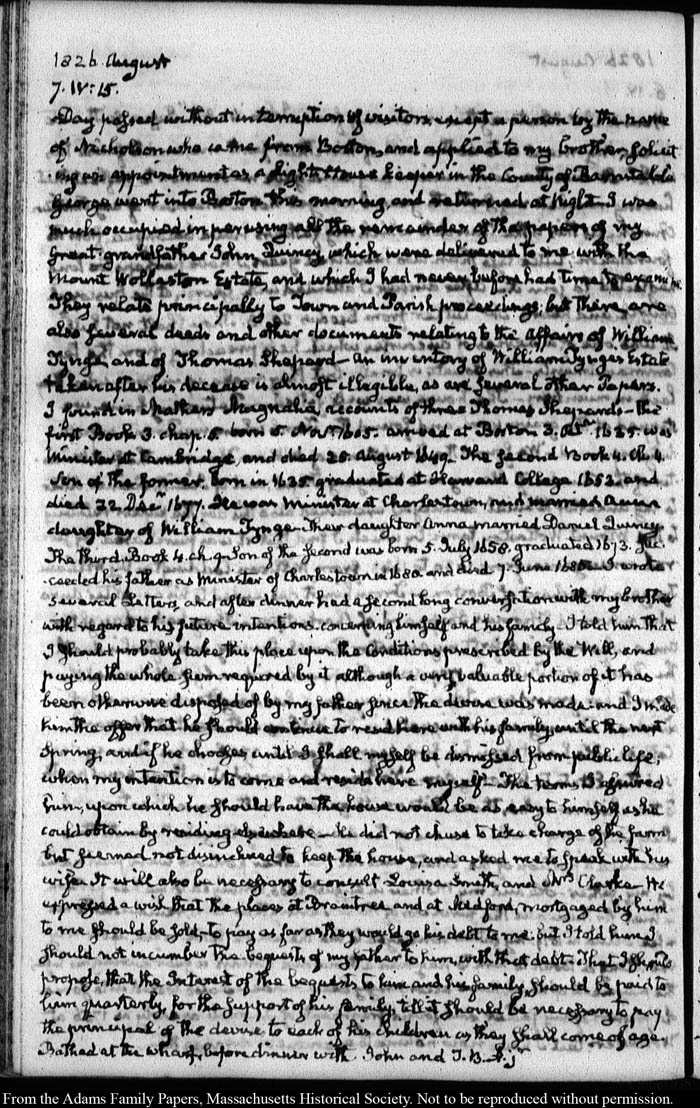 1826. August
7. IV: 15.
Day passed without interruption of visitors, except a person by the name
of Nicholson who came from Boston, and applied to my brother, solicit
ing an appointment as a Light House Keeper in the County of Barnstable
George went into Boston this morning, and returned at Night. I was
much occupied in perusing all the remainder of the papers of my
Great-grandfather John Quincy, which were delivered to me with the
Mount Wollaston Estate, and which I had never before had time to examine.
They relate principally to Town and Parish proceedings; but there are
also several deeds and other documents relating to the Affairs of William
Tynge, and of Thomas Shepard — an inventory of William Tynges Estate
taken after his decease is almost illegible, as are several other Papers.
I found in Mathers Magnalia, accounts of three Thomas Shepards — the
first Book 3. chap. 5. born 5. Novr. 1605. arrived at Boston 3. Octr. 1635. was
Minister at Cambridge, and died 25. August 1649. The second Book 4. Ch. 9.
Son of the former, born in 1635 graduated at Harvard College 1653. and
died 22 Decr. 1677. He was Minister at Charlestown, and married Anna
daughter of William Tynge. Their daughter Anna married Daniel Quincy.
The third. Book 4. ch. 9. Son of the second was born 5. July 1658. graduated 1673. Suc
ceeded his father as Minister of Charlestown in 1680. and died 7. June 1685. I wrote
several Letters, and after dinner had a second long conversation with my brother
with regard to his future intentions concerning himself and his family. I told him that
I should probably take this place upon the Conditions prescribed by the Will, and
paying the whole sum required by it although a very valuable portion of it has
been otherwise disposed of by my father since the devise was made: and I made
him the offer that he should continue to reside here with his family, until the next
Spring, and if he chooses until I shall myself be dismissed from public life,
when my intention is to come and reside here myself. The terms I assured
him, upon which he should have the house would be as easy to himself as he
could obtain by residing elsewhere — He did not chuse to take charge of the farm
but seemed not disinclined to keep the house, and asked me to speak with his
wife. It will also be necessary to consult Louisa Smith, and Mrs. Clarke — He
expressed a wish that the places at Braintree and at Medford, mortgaged by him
to me should be sold, to pay as far as they would go his debt to me: but I told him I
should not incumber the bequests of my father to him, with that debt. That I should
propose, that the Interest of the bequests to him and his family, should be paid to
him quarterly, for the support of his family, till it should be necessary to pay
the principal of the devise to each of his Children as they shall come of age.
Bathed at the wharf, before dinner with John and T. B. A. jr
From the Adams Family Papers, Massachusetts Historical Society. Not to be reproduced without permission.